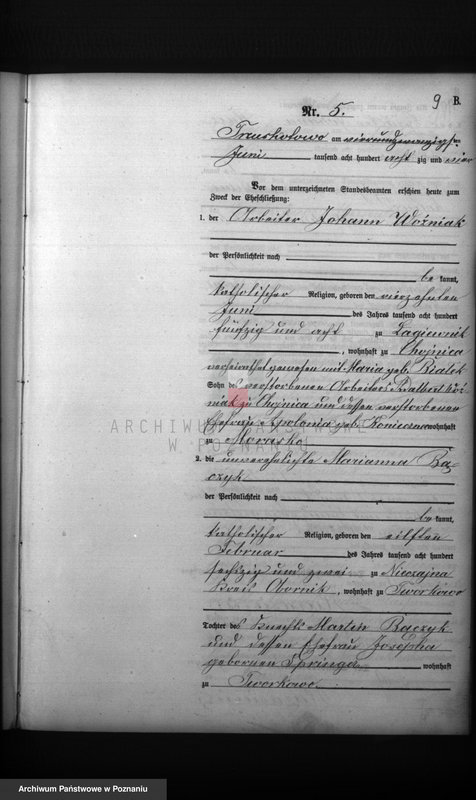 9 B.
Nr. 5.
Truskotowo am vierundzwanzigsten
Juni tausend acht hundert acht zig und vier
Vor dem unterzeichneten Standesbeamten erschien heute zum
Zweck der Eheschließung:
1. der Arbeiter Johann Woźniak
der Persönlichkeit nach
be kannt,
katholischer Religion, geboren den vierzehnten
Juni des Jahres tausend acht hundert
fünfzig und acht zu Łagiewnik
, wohnhaft zu Chojnica
verheirathet gewesen mit Maria geb. Bialek
Sohn des verstorbenen Arbeiters Adalbert Woź-
niak zu Chojnica und dessen verstorbenen
Ehefrau Apolonia geb. wohnhaft
ARCHIWUM PAŃSTWOWE
W POZNANIU
zu Morasko
2. die unverehelichte Marianna Ba-
czyk
der Persönlichkeit nach
be kannt,
katholischer Religion, geboren den eilften
Februar des Jahres tausend acht hundert
sechszig und zwei zu Nieczajna
Kreis Obornik, wohnhaft zu Tworkowo
Tochter des Knechts Martin Baczyk
und dessen Ehefrau Josepha
geborenen Springa wohnhaft
zu Tworkowo.
Archiwum Państwowe w Poznaniu